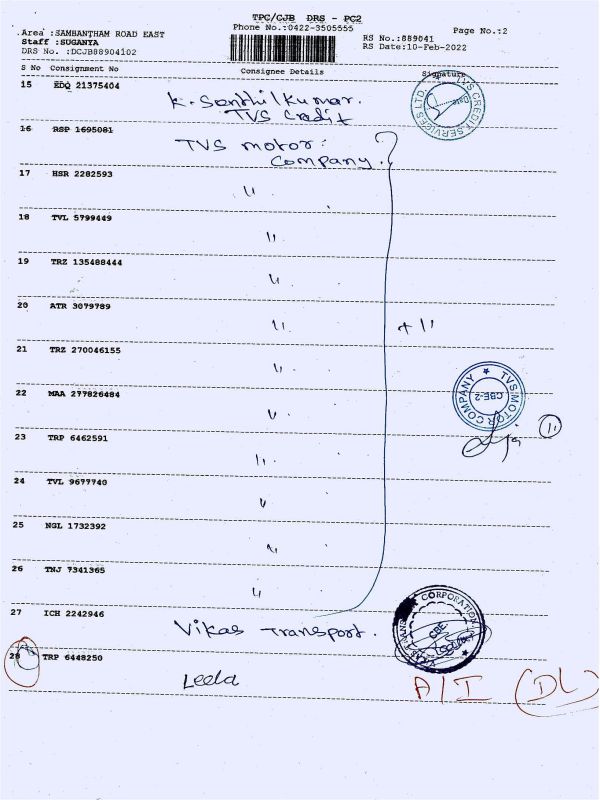 TPC/CJB DRS - PC2
Area :SAMBANTHAM ROAD EAST
Phone No.:0422-3505555
Page No.:2
Staff :SUGANYA
RS No.:889041
DRS No. :DCJB88904102
RS Date:10-Feb-2022
S No Consignment No Consignee Details Signature
15 EDQ 21375404
K. Senthilkumar.
TVS Credit
TVS CREDIT SERVICES LTD.
16 RSP 1695081
TVS motor
Company.
17 HSR 2282593
"
18 TVL 5799449
"
19 TRZ 135488444
"
20 ATR 3079789
"
+ 11
21 TRZ 270046155
"
TVS MOTOR COMPANY
CBE-2
22 MAA 277826484
"
11
23 TRP 6462591
"
24 TVL 9677740
"
25 NGL 1732392
"
26 TNJ 7341365
"
27 ICH 2242946
Vikas Transport.
CORPORATION
CBE
28 TRP 6448250
Leela
A/I (DL)